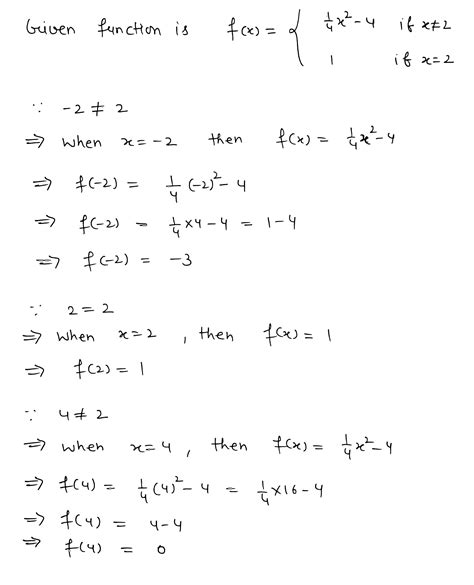 Given function is f(x) = { 1/4 x² - 4 if x≠2
1 if x=2
∵ -2 ≠ 2
⇒ when x = -2 then f(x) = 1/4 x² - 4
⇒ f(-2) = 1/4 (-2)² - 4
⇒ f(-2) = 1/4 × 4 - 4 = 1 - 4
⇒ f(-2) = -3
∵ 2 = 2
⇒ when x = 2 , then f(x) = 1
⇒ f(2) = 1
∵ 4 ≠ 2
⇒ when x = 4 , then f(x) = 1/4 x² - 4
⇒ f(4) = 1/4 (4)² - 4 = 1/4 × 16 - 4
⇒ f(4) = 4 - 4
⇒ f(4) = 0